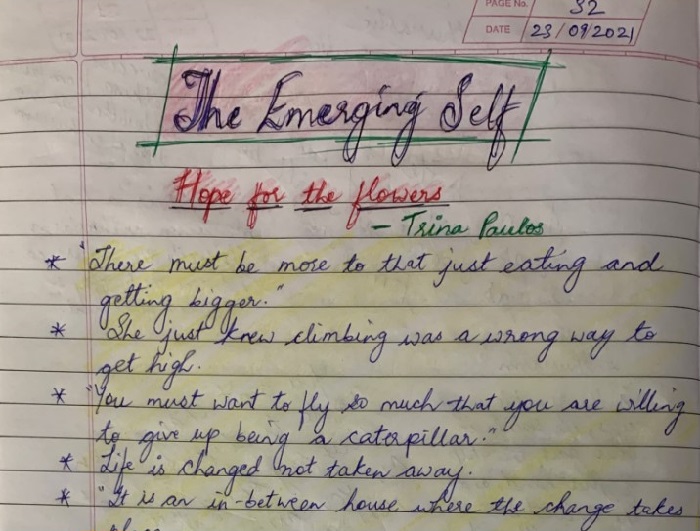 PAGE No. 32
DATE 23/09/2021
The Emerging Self
Hope for the flowers
- Trina Paulos
* "There must be more to that just eating and
getting bigger."
* "She just knew climbing was a wrong way to
get high.
* "You must want to fly so much that you are willing
to give up being a caterpillar."
* Life is changed not taken away.
* "It is an in-between house where the change takes